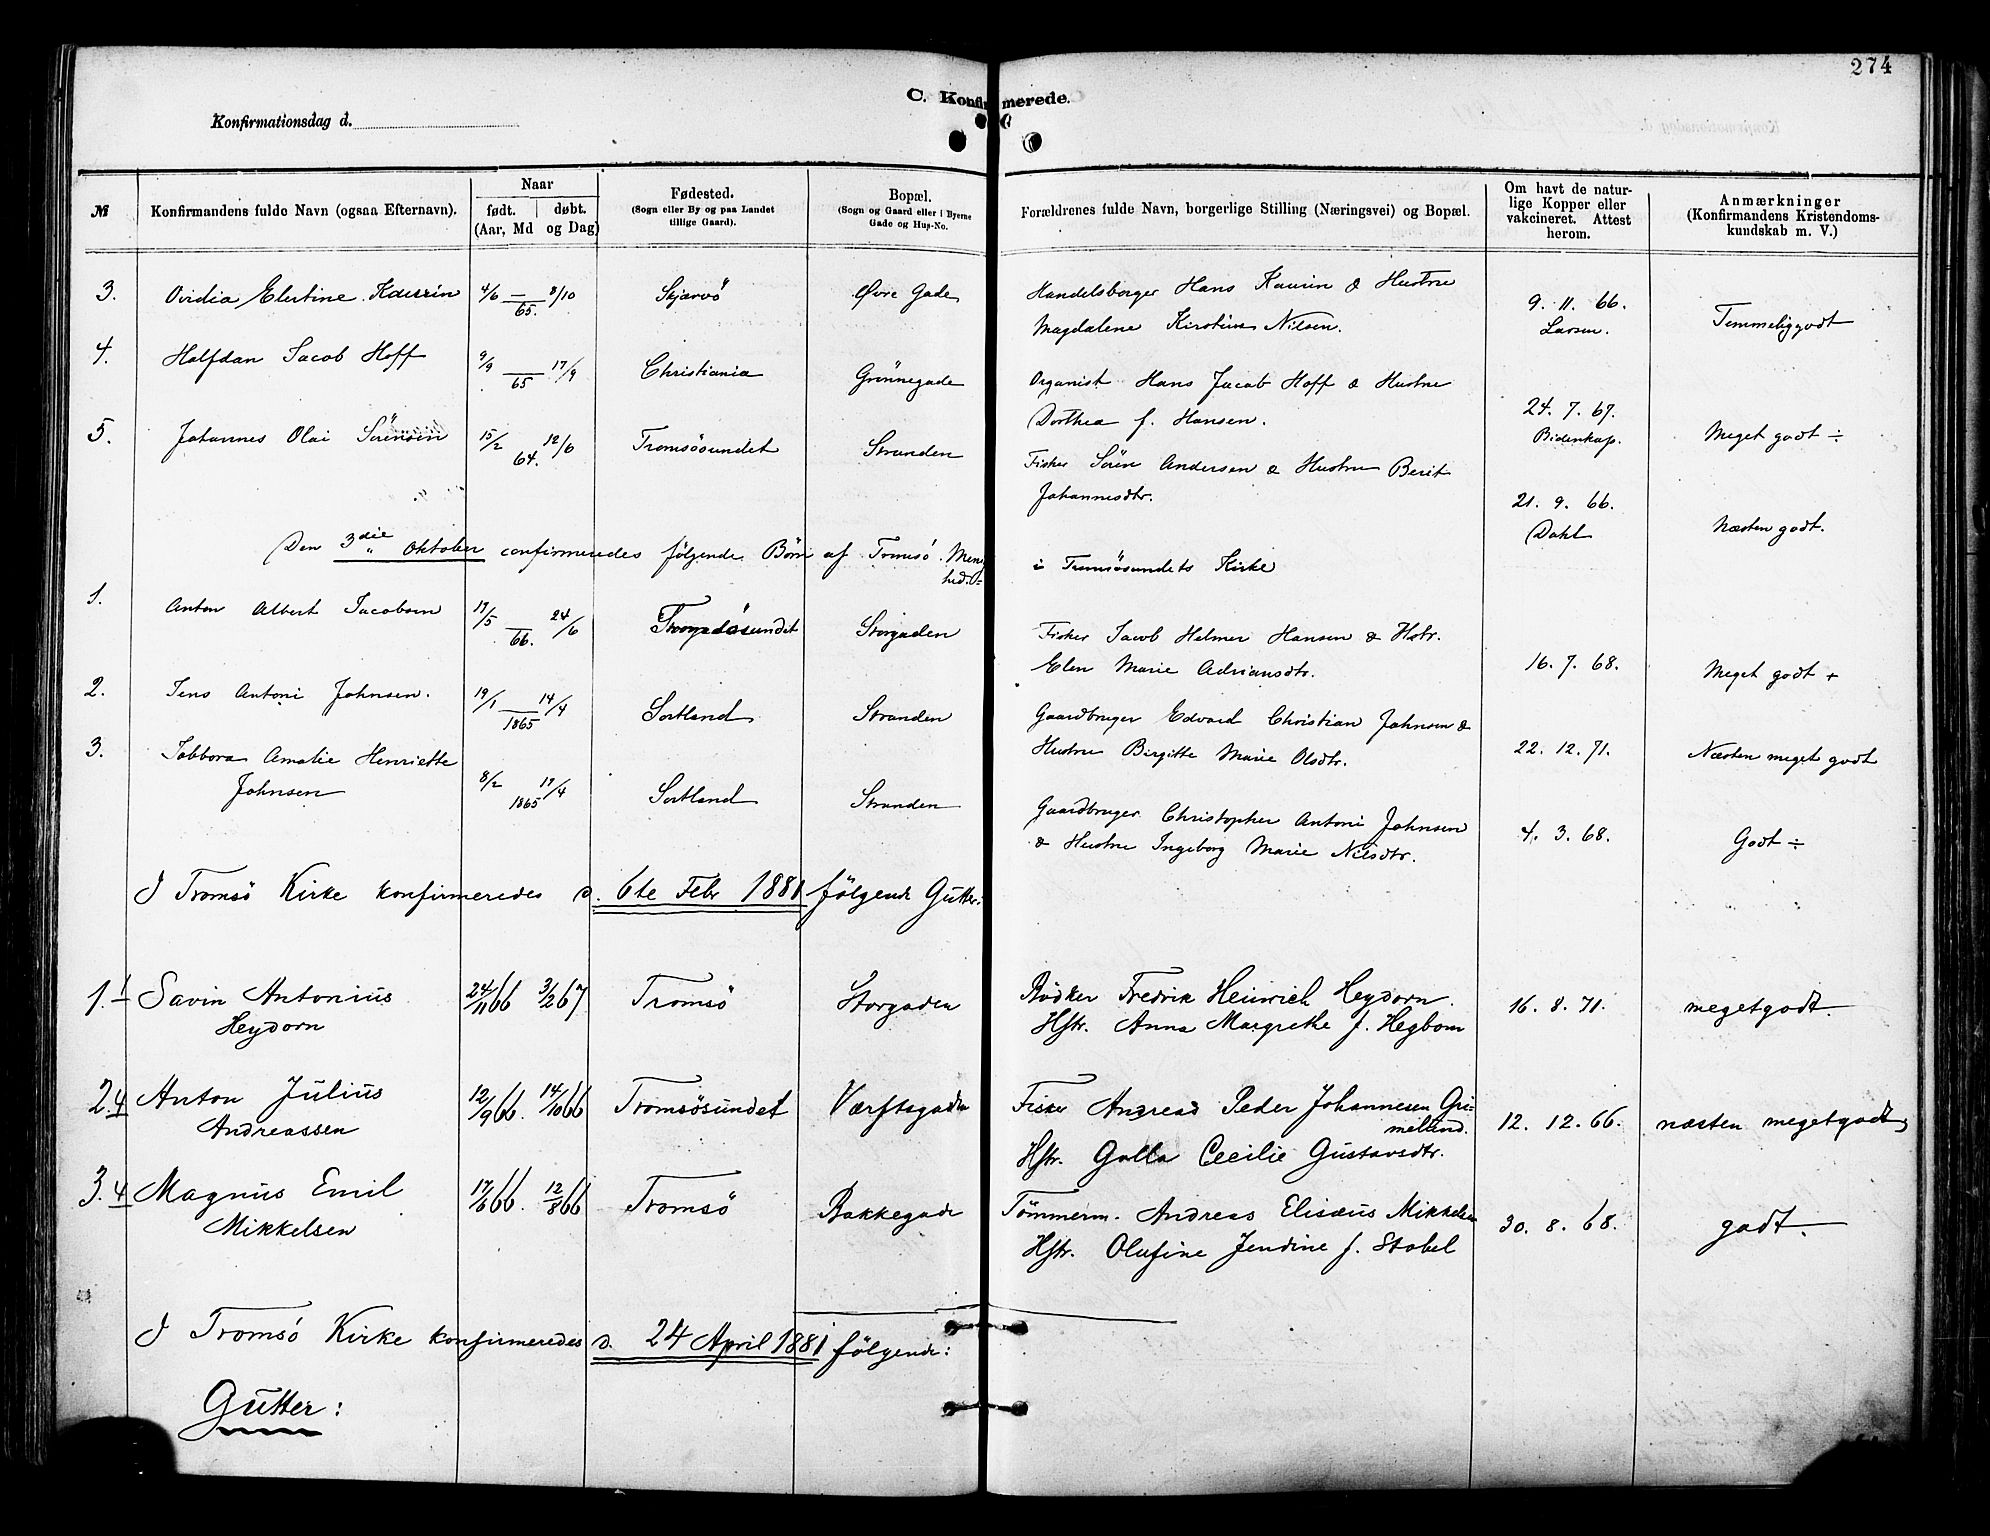 274
C. Konfirmerede.
Konfirmationsdag d.
№ Konfirmandens fulde Navn (ogsaa Efternavn). Naar født. døbt. (Aar, Md og Dag) Fødested. (Sogn eller By og paa Landet tillige Gaard). Bopæl. (Sogn og Gaard eller i Byerne Gade og Hus-No. Forældrenes fulde Navn, borgerlige Stilling (Næringsvei) og Bopæl. Om havt de naturlige Kopper eller vakcineret. Attest herom. Anmærkninger (Konfirmandens Kristendomskundskab m. V.)
3. Ovidia Elertine Kaurin 4/6 8/10 65. Skjærvö Øvre Gade Handelsborger Hans Kaurin & Hustru
Magdalene Nilsen. 9. 11. 66. Larsen. Temmelig godt
4. Halfdan Jacob Hoff 9/9 17/9 65 Christiania Grönnegade Organist Hans Jacob Hoff & Hustru
Dorthea f. Hansen. 24. 7. 67. Bidenkap. Meget godt ÷
5. Johannes Olai Sörensen 15/2 12/6 64. Tromsösundet Stranden Fisker Sören Andersen & Hustru Berit
Johannesdtr. 21. 9. 66. Dahl Næsten godt.
Den 3die Oktober confirmeredes følgende Børn af Tromsö Menighed i Tromsösundets Kirke
1. Anton Albert Jacobsen 17/5 24/6 66. Tromsösundet Storgaden Fisker Jacob Helmer Hansen & Hstr.
Elen Marie Adriansdtr. 16. 7. 68. Meget godt +
2. Jens Antoni Johnsen. 19/1 14/4 1865 Sortland Stranden Gaardbruger Edvard Christian Johnsen &
Hustru Birgitte Marie Olsdtr. 22. 12. 71. Næsten meget godt
3. Jabbora Amalie Henriette
Johnsen 8/2 17/4 1865 Sortland Stranden Gaardbruger Christopher Antoni Johnsen
& Hustru Ingeborg Marie Nilsdtr. 4. 3. 68. Godt ÷
I Tromsö Kirke konfirmeredes d. 6te Febr 1881 følgende Gutter:
1. 1 Savin Antonius
Heydorn 24/11 66 3/2 67 Tromsö Storgaden Bödker Fredrik Heinrich Heydorn.
Hstr. Anna Margrethe f. Hegbom 16. 8. 71. megetgodt.
2. 4 Anton Julius
Andreassen 12/9 66. 14/10 66 Tromsösundet Værftsgaden Fisker Andreas Peder Johannesen Grimelund.
Hstr. Golla Cecilie Gustavsdtr. 12. 12. 66. næsten megetgodt
3. 4 Magnus Emil
Mikkelsen 17/6 66. 12/8 66 Tromsö Bakkegade Tömmerm. Andreas Elisæus Mikkelsen
Hstr. Olufine Jendine f. Stabel 30. 8. 68. godt.
I Tromsö Kirke konfirmeredes d. 24 April 1881 følgende:
Gutter: